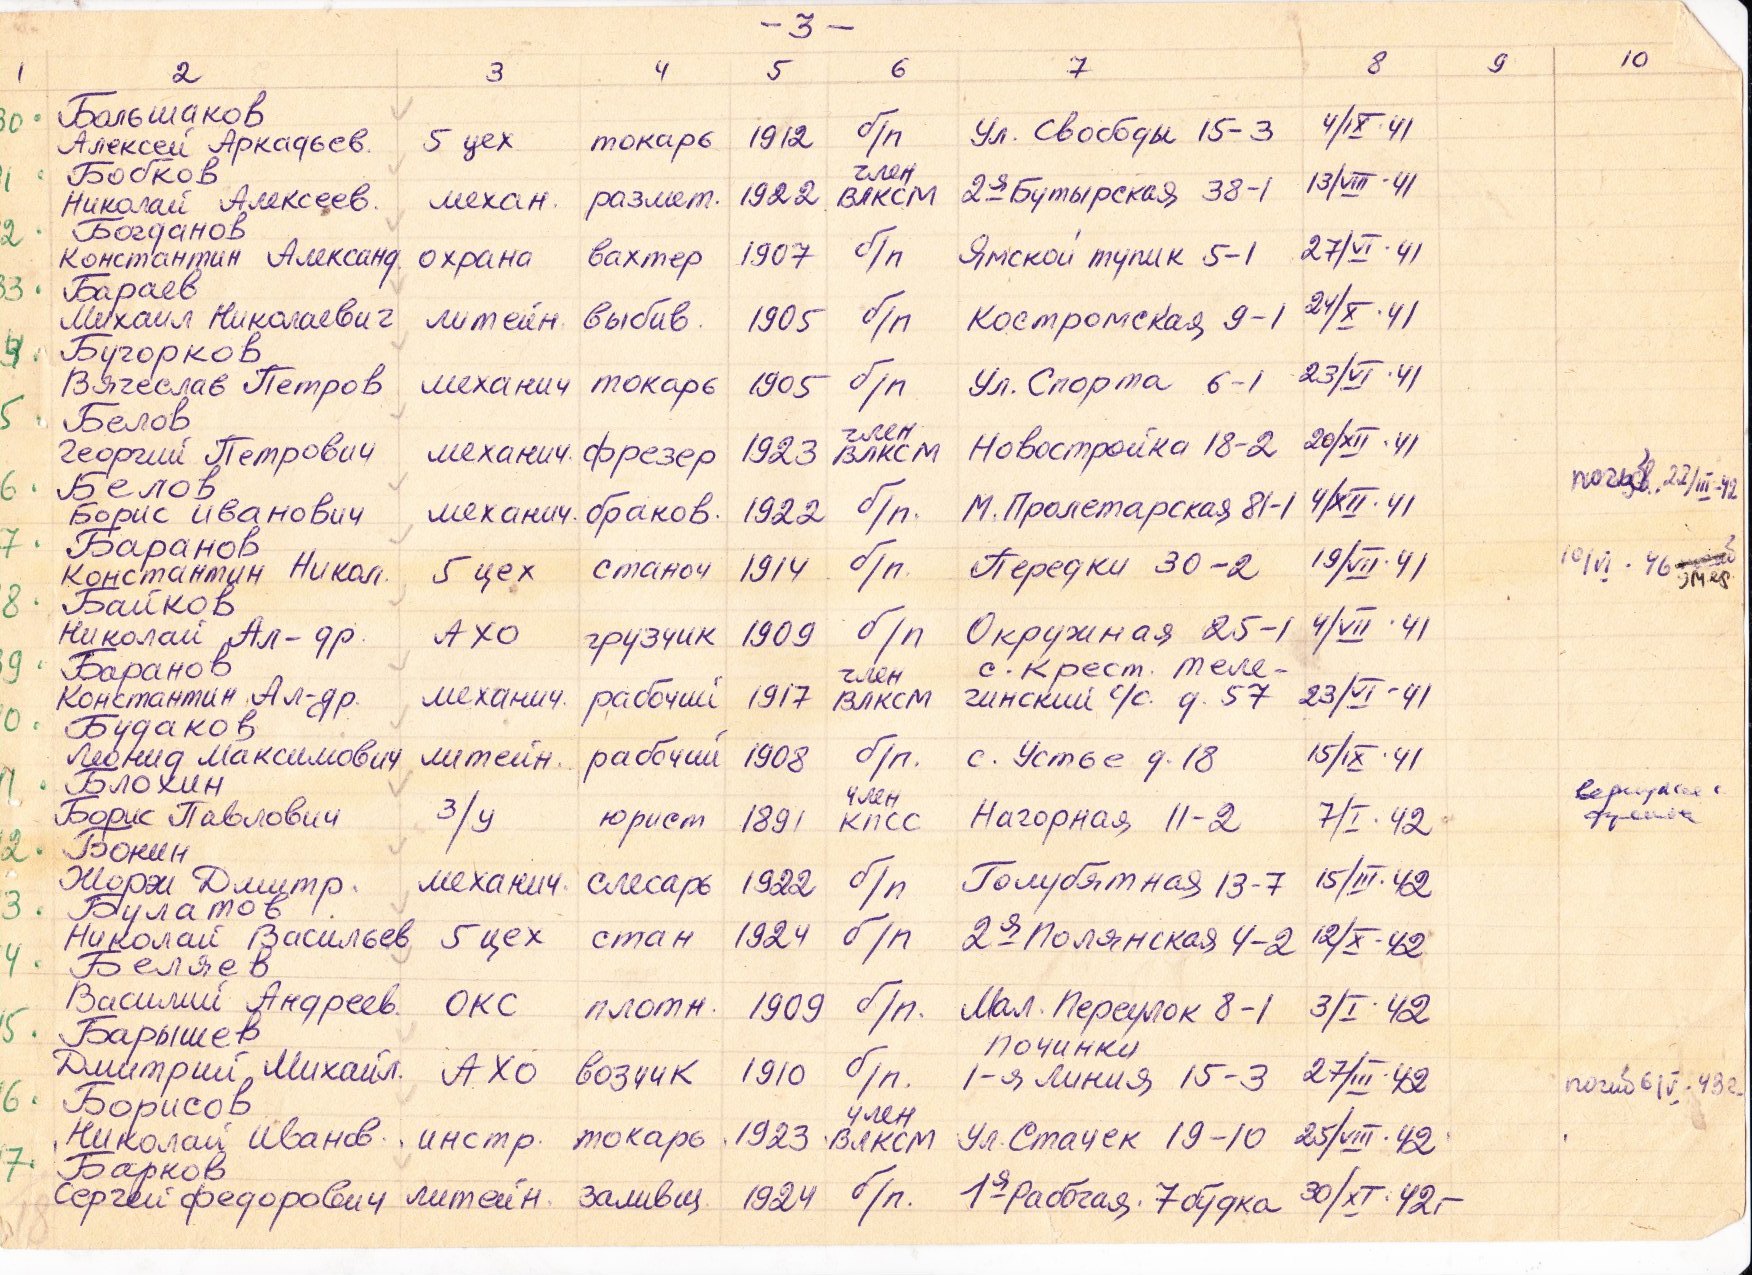 -3-
1 2 3 4 5 6 7 8 9 10
30. Большаков
Алексей Аркадьев. 5 цех токарь 1912 б/п Ул. Свободы 15-3 4/IX·41
1. Бобков член
Николай Алексеев. механ. размет. 1922 ВЛКСМ 2я Бутырская 38-1 13/VIII·41
2. Богданов
Константин Александ. охрана вахтер 1907 б/п Ямской тупик 5-1 27/VI·41
33. Бараев
Михаил Николаевич литейн. выбив. 1905 б/п Костромская 9-1 24/X·41
4. Бугорков
Вячеслав Петров механич токарь 1905 б/п Ул. Спорта 6-1 23/VI·41
5. Белов член
Георгий Петрович механич. фрезер 1923 ВЛКСМ Новостройка 18-2 20/XII·41
6. Белов погиб. 22/III-42
Борис Иванович механич. браков. 1922 б/п. М. Пролетарская 81-1 4/XII·41
7. Баранов
Константин Никол. 5 цех станоч 1914 б/п. Передки 30-2 19/VII·41 10/VI·46
8. Байков
Николай Ал-др. АХО грузчик 1909 б/п Окружная 25-1 4/VII·41
39. Баранов член с. Крест. Теле-
Константин Ал-др. механич. рабочий 1917 ВЛКСМ гинский с/с. д. 57 23/VI-41
0. Будаков
Леонид Максимович литейн. рабочий 1908 б/п. с. Устье д. 18 15/IX·41
1. Блохин член вернулся с
Борис Павлович З/у юрист 1891 КПСС Нагорная 11-2 7/I·42
2. Бонин
Жорж Дмитр. механич. слесарь 1922 б/п Голубятная 13-7 15/III·42
3. Булатов
Николай Васильев 5 цех стан 1924 б/п 2я Полянская 4-2 12/X·42
4. Беляев
Василий Андреев. ОКС плотн. 1909 б/п. Мал. Переулок 8-1 3/I·42
5. Барышев Починки
Дмитрий Михайл. АХО возчик 1910 б/п. 1-я линия 15-3 27/III·42 погиб 6/V·43г.
6. Борисов член
Николай Иванов. инстр. токарь 1923 ВЛКСМ Ул. Стачек 19-10 25/VIII·42
7. Барков
Сергей Федорович литейн. заливщ. 1924 б/п. 1я Рабочая. 7 будка 30/XI·42г